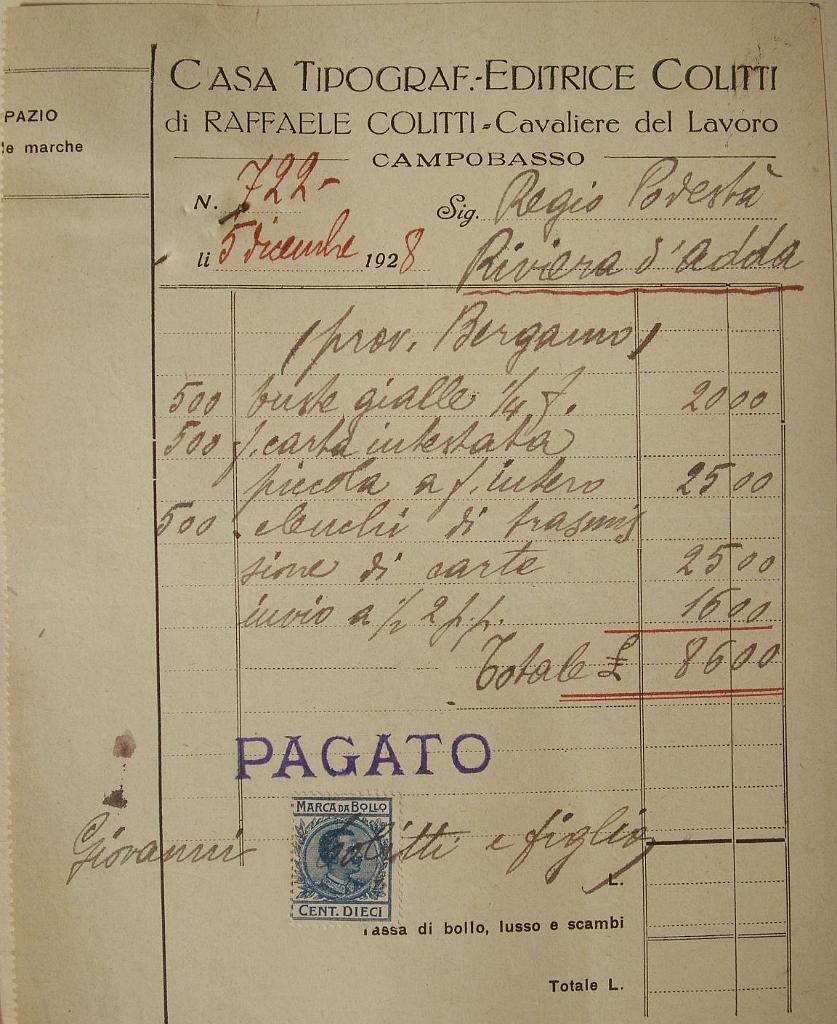 PAZIO
le marche
CASA TIPOGRAF.-EDITRICE COLITTI
di RAFFAELE COLITTI-Cavaliere del Lavoro
CAMPOBASSO
N. 722- Sig. Regio Podestà
li 5 dicembre 1928 Riviera d'Adda
(prov. Bergamo)
500 buste gialle 1/4 f. 20 00
500 f. carta intestata
piccola a f. intero 25 00
500 elenchi di trasmis
sione di carte 25 00
invio a 1/2 2 p.p. 16 00
Totale £ 86 00
PAGATO
MARCA DA BOLLO
Giovanni Colitti e figlio
L.
CENT. DIECI
Tassa di bollo, lusso e scambi
Totale L.